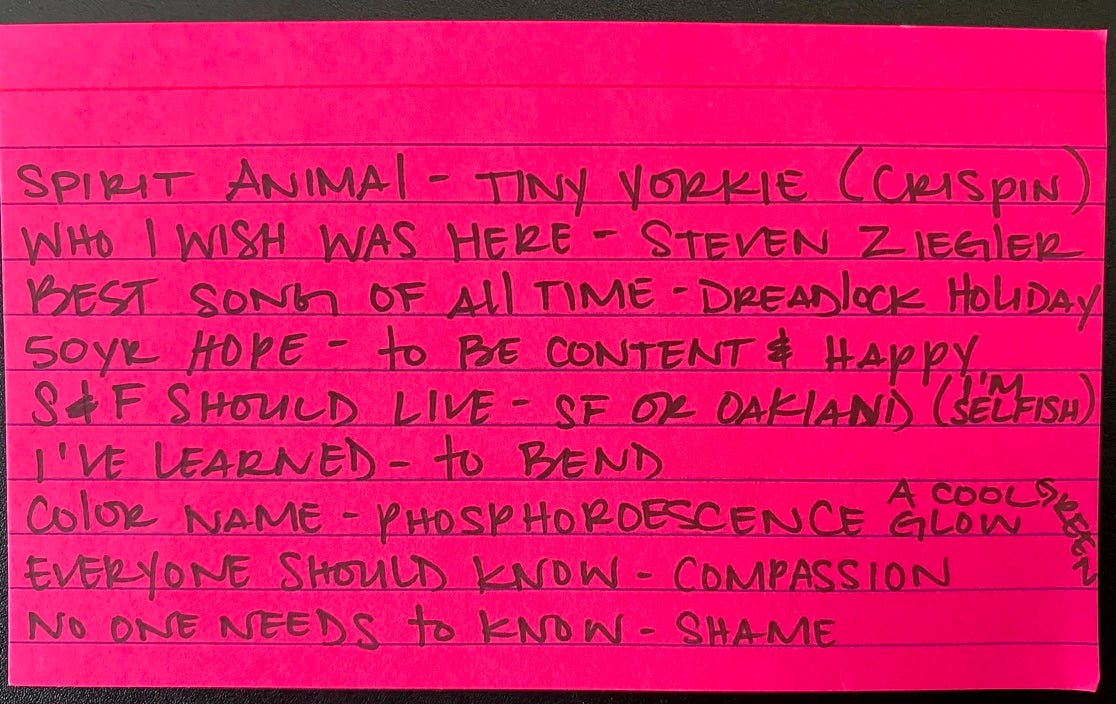 SPIRIT ANIMAL - TINY YORKIE (CRISPIN)
WHO I WISH WAS HERE - STEVEN ZIEGLER
BEST SONG OF All TIME - DREADlOCK HOLIDAY
50YR HOPE - to BE CONTENT & HAppY
S & F SHOULD LIVE - SF OR OAKLAND (I'M SELFISH)
I'VE LEARNED - to BEND
COlOR NAME - PHOSPHOROESCENCE A COOL GREEN GLOW
EVERYONE SHOULD KNOW - COMPASSION
NO ONE NEEDS to KNOW - SHAME